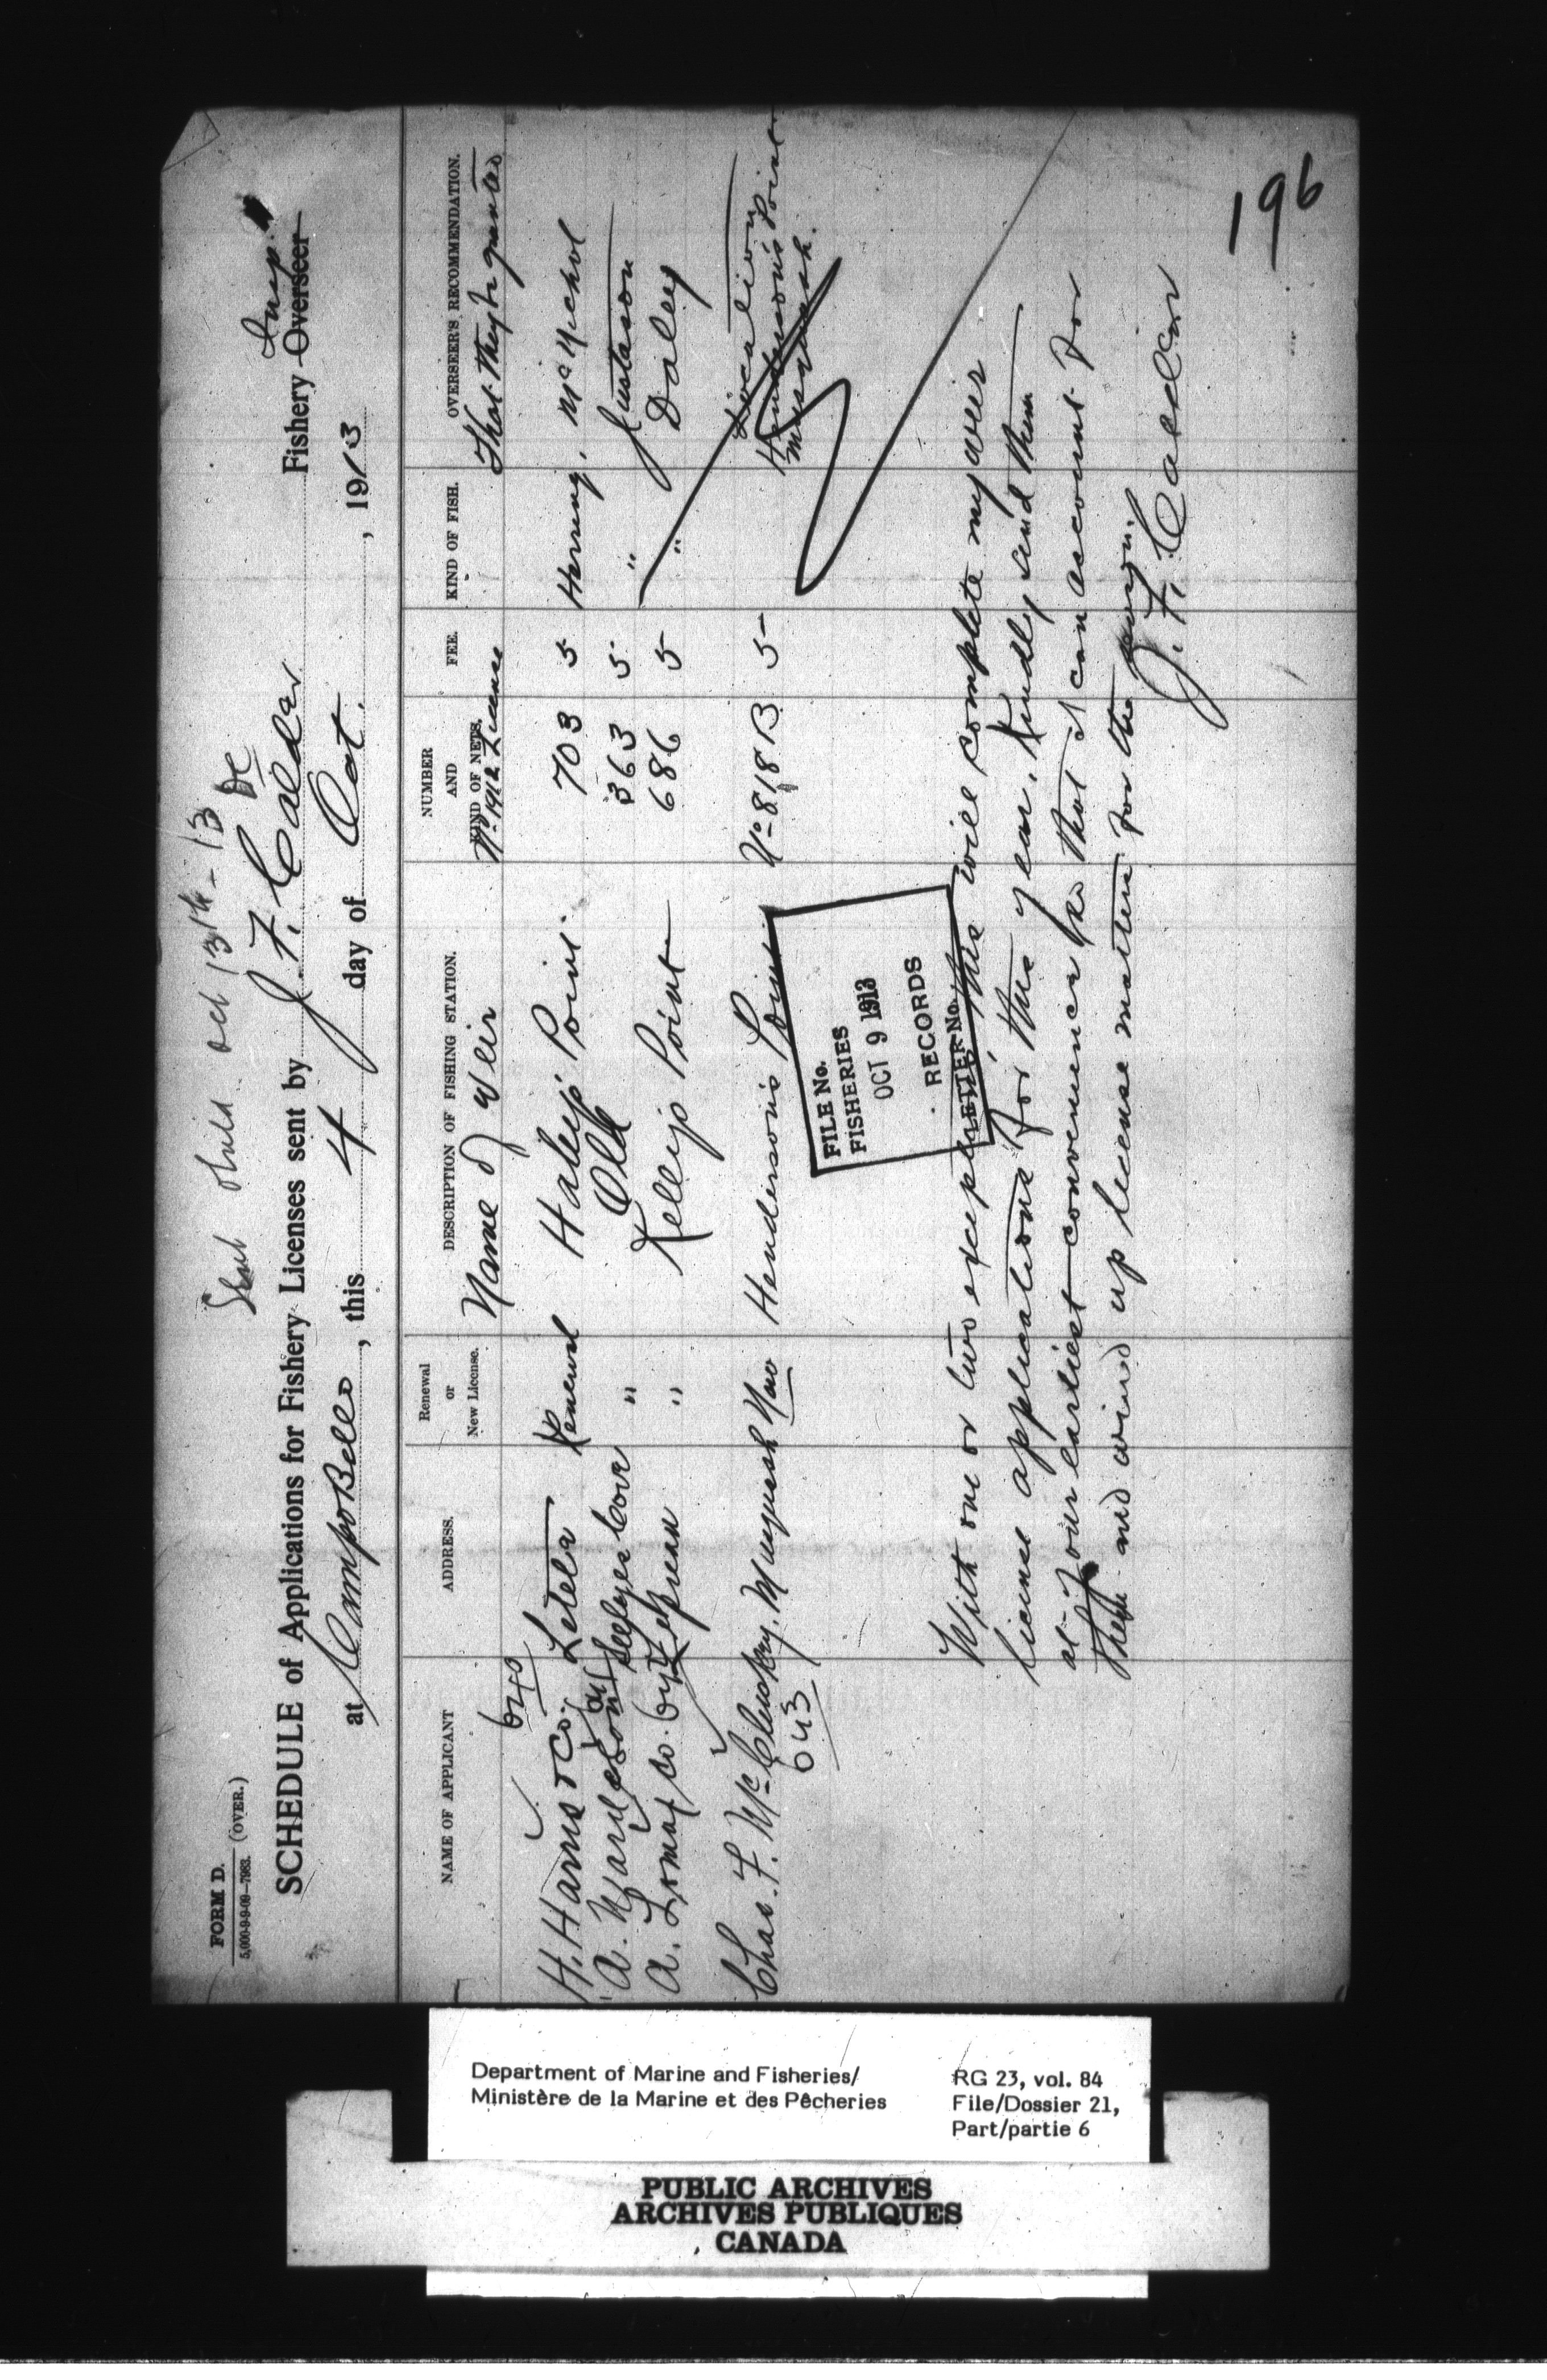 FORM D.
5,000-9-9-09—7963. (OVER.)
Sent child Oct 13th - 13
SCHEDULE of Applications for Fishery Licenses sent by J. F. Calder Fishery Overseer Insp.
at CampoBello, this 4 day of Oct. , 1913
NAME OF APPLICANT
ADDRESS.
Renewal
or
New License.
DESCRIPTION OF FISHING STATION.
NUMBER
AND
KIND OF NETS.
FEE.
KIND OF FISH.
OVERSEER'S RECOMMENDATION.
Name of Weir No. 1912 License That they be granted
640
H. Harris & Co. Letete Renewal Haley's Point. 703 5 Herring, McNichol
A. Seelyes Cove " Old 363 5 " Justason
A. Lomax Co. Lepreau " Kelley's Point 686 5 " Daley
Chas. F. McCluskey, Musquash New Henderson's Point No 818 B 5 Location
Henderson's Point
Musquash.
643
FILE No.
FISHERIES
OCT 9 1913
RECORDS
LETTER No.
With one or two exceptions, this will complete my weir
license applications for this year. Kindly send them
at your earliest convenience so that I can account for
them and wind up license matters for the
J. F. Calder
196
Department of Marine and Fisheries/
Ministère de la Marine et des Pêcheries
RG 23, vol. 84
File/Dossier 21,
Part/partie 6
PUBLIC ARCHIVES
ARCHIVES PUBLIQUES
CANADA